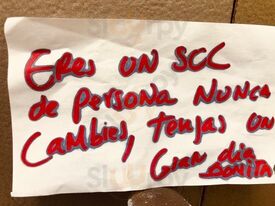 Eres UN SOL
de persona NUNCA
Cambies, tengas UN
Gran dia
BONITA